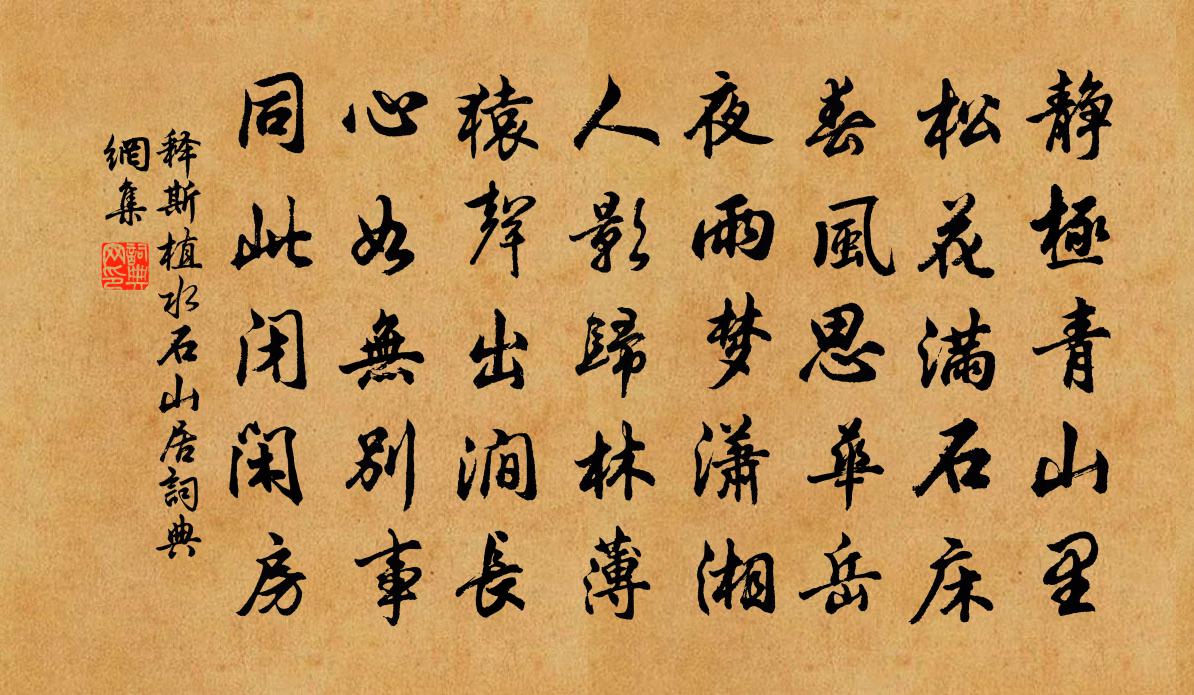 静極青山里
松花满石床
春風思華岳
夜雨梦潇湘
人影歸林薄
猿聲出澗長
心如無別事
同此闭闲房
释斯植水石山居詞典
網集
詞典
网印